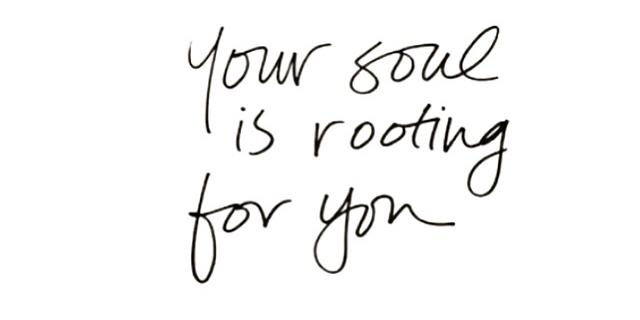 your soul
is rooting
for you